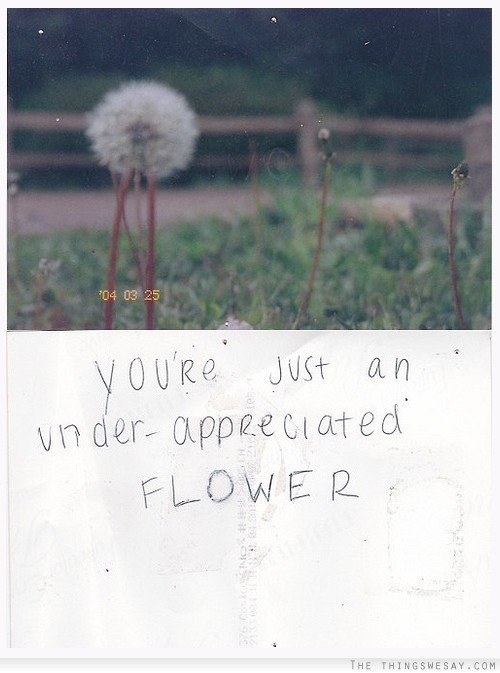 '04 03 25
YOU'RE JUST an
under-appreciated
FLOWER
THE THINGSWESAY.COM